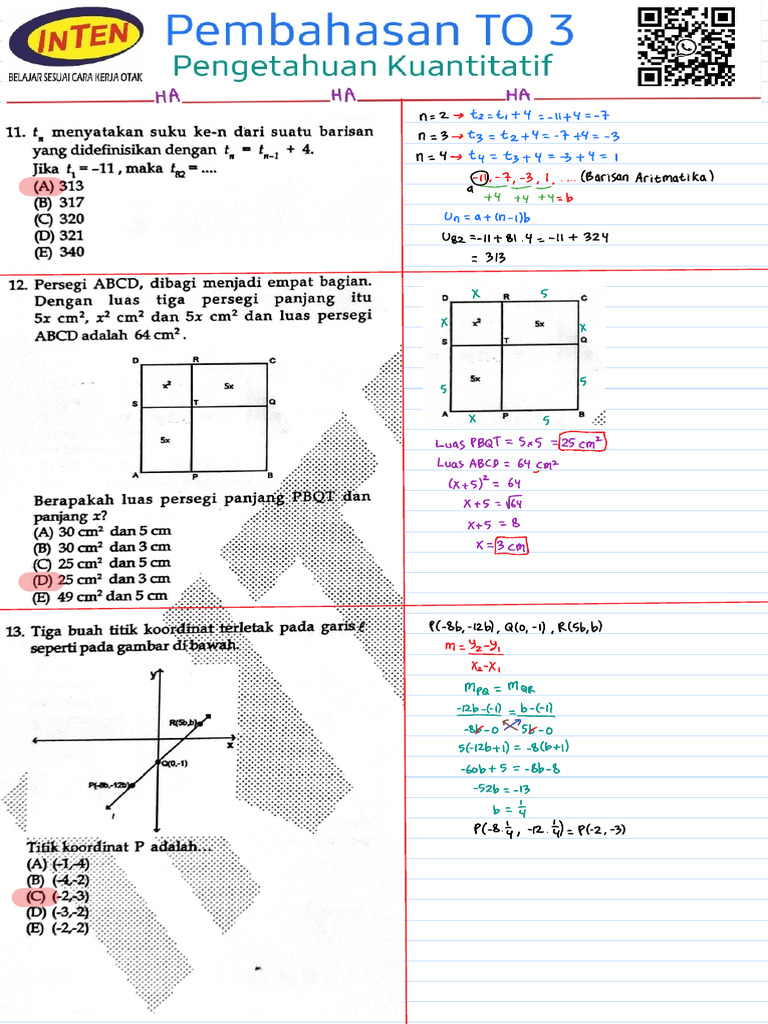 INTEN
BELAJAR SESUAI CARA KERJA OTAK
Pembahasan TO 3
Pengetahuan Kuantitatif
HA HA HA
11. tₙ menyatakan suku ke-n dari suatu barisan
yang didefinisikan dengan tₙ = tₙ₋₁ + 4.
Jika t₁ = –11 , maka t₈₂ = ....
(A) 313
(B) 317
(C) 320
(D) 321
(E) 340
n = 2 → t₂ = t₁ + 4 = -11 + 4 = -7
n = 3 → t₃ = t₂ + 4 = -7 + 4 = -3
n = 4 → t₄ = t₃ + 4 = -3 + 4 = 1
-11, -7, -3, 1, .... (Barisan Aritmatika)
a +4 +4 +4 = b
Un = a + (n-1)b
U₈₂ = -11 + 81 . 4 = -11 + 324
= 313
12. Persegi ABCD, dibagi menjadi empat bagian.
Dengan luas tiga persegi panjang itu
5x cm², x² cm² dan 5x cm² dan luas persegi
ABCD adalah 64 cm².
D R C
x² 5x
S T Q
5x
A P B
Berapakah luas persegi panjang PBQT dan
panjang x?
(A) 30 cm² dan 5 cm
(B) 30 cm² dan 3 cm
(C) 25 cm² dan 5 cm
(D) 25 cm² dan 3 cm
(E) 49 cm² dan 5 cm
D x R 5 C
x x² 5x x
S T Q
5 5x 5
A x P 5 B
Luas PBQT = 5 x 5 = 25 cm²
Luas ABCD = 64 cm²
(x+5)² = 64
x+5 = √64
x+5 = 8
x = 3 cm
13. Tiga buah titik koordinat terletak pada garis ℓ
seperti pada gambar di bawah.
y
R(5b,b)
x
Q(0,-1)
P(-8b,-12b)
l
Titik koordinat P adalah...
(A) (-1,-4)
(B) (-4,-2)
(C) (-2,-3)
(D) (-3,-2)
(E) (-2,-2)
P(-8b, -12b), Q(0, -1) , R(5b, b)
m = y₂ - y₁
x₂ - x₁
mPQ = mQR
-12b-(-1) = b-(-1)
-8b-0 5b-0
5(-12b+1) = -8(b+1)
-60b + 5 = -8b - 8
-52b = -13
b = 1/4
P(-8 . 1/4, -12 . 1/4) = P(-2, -3)